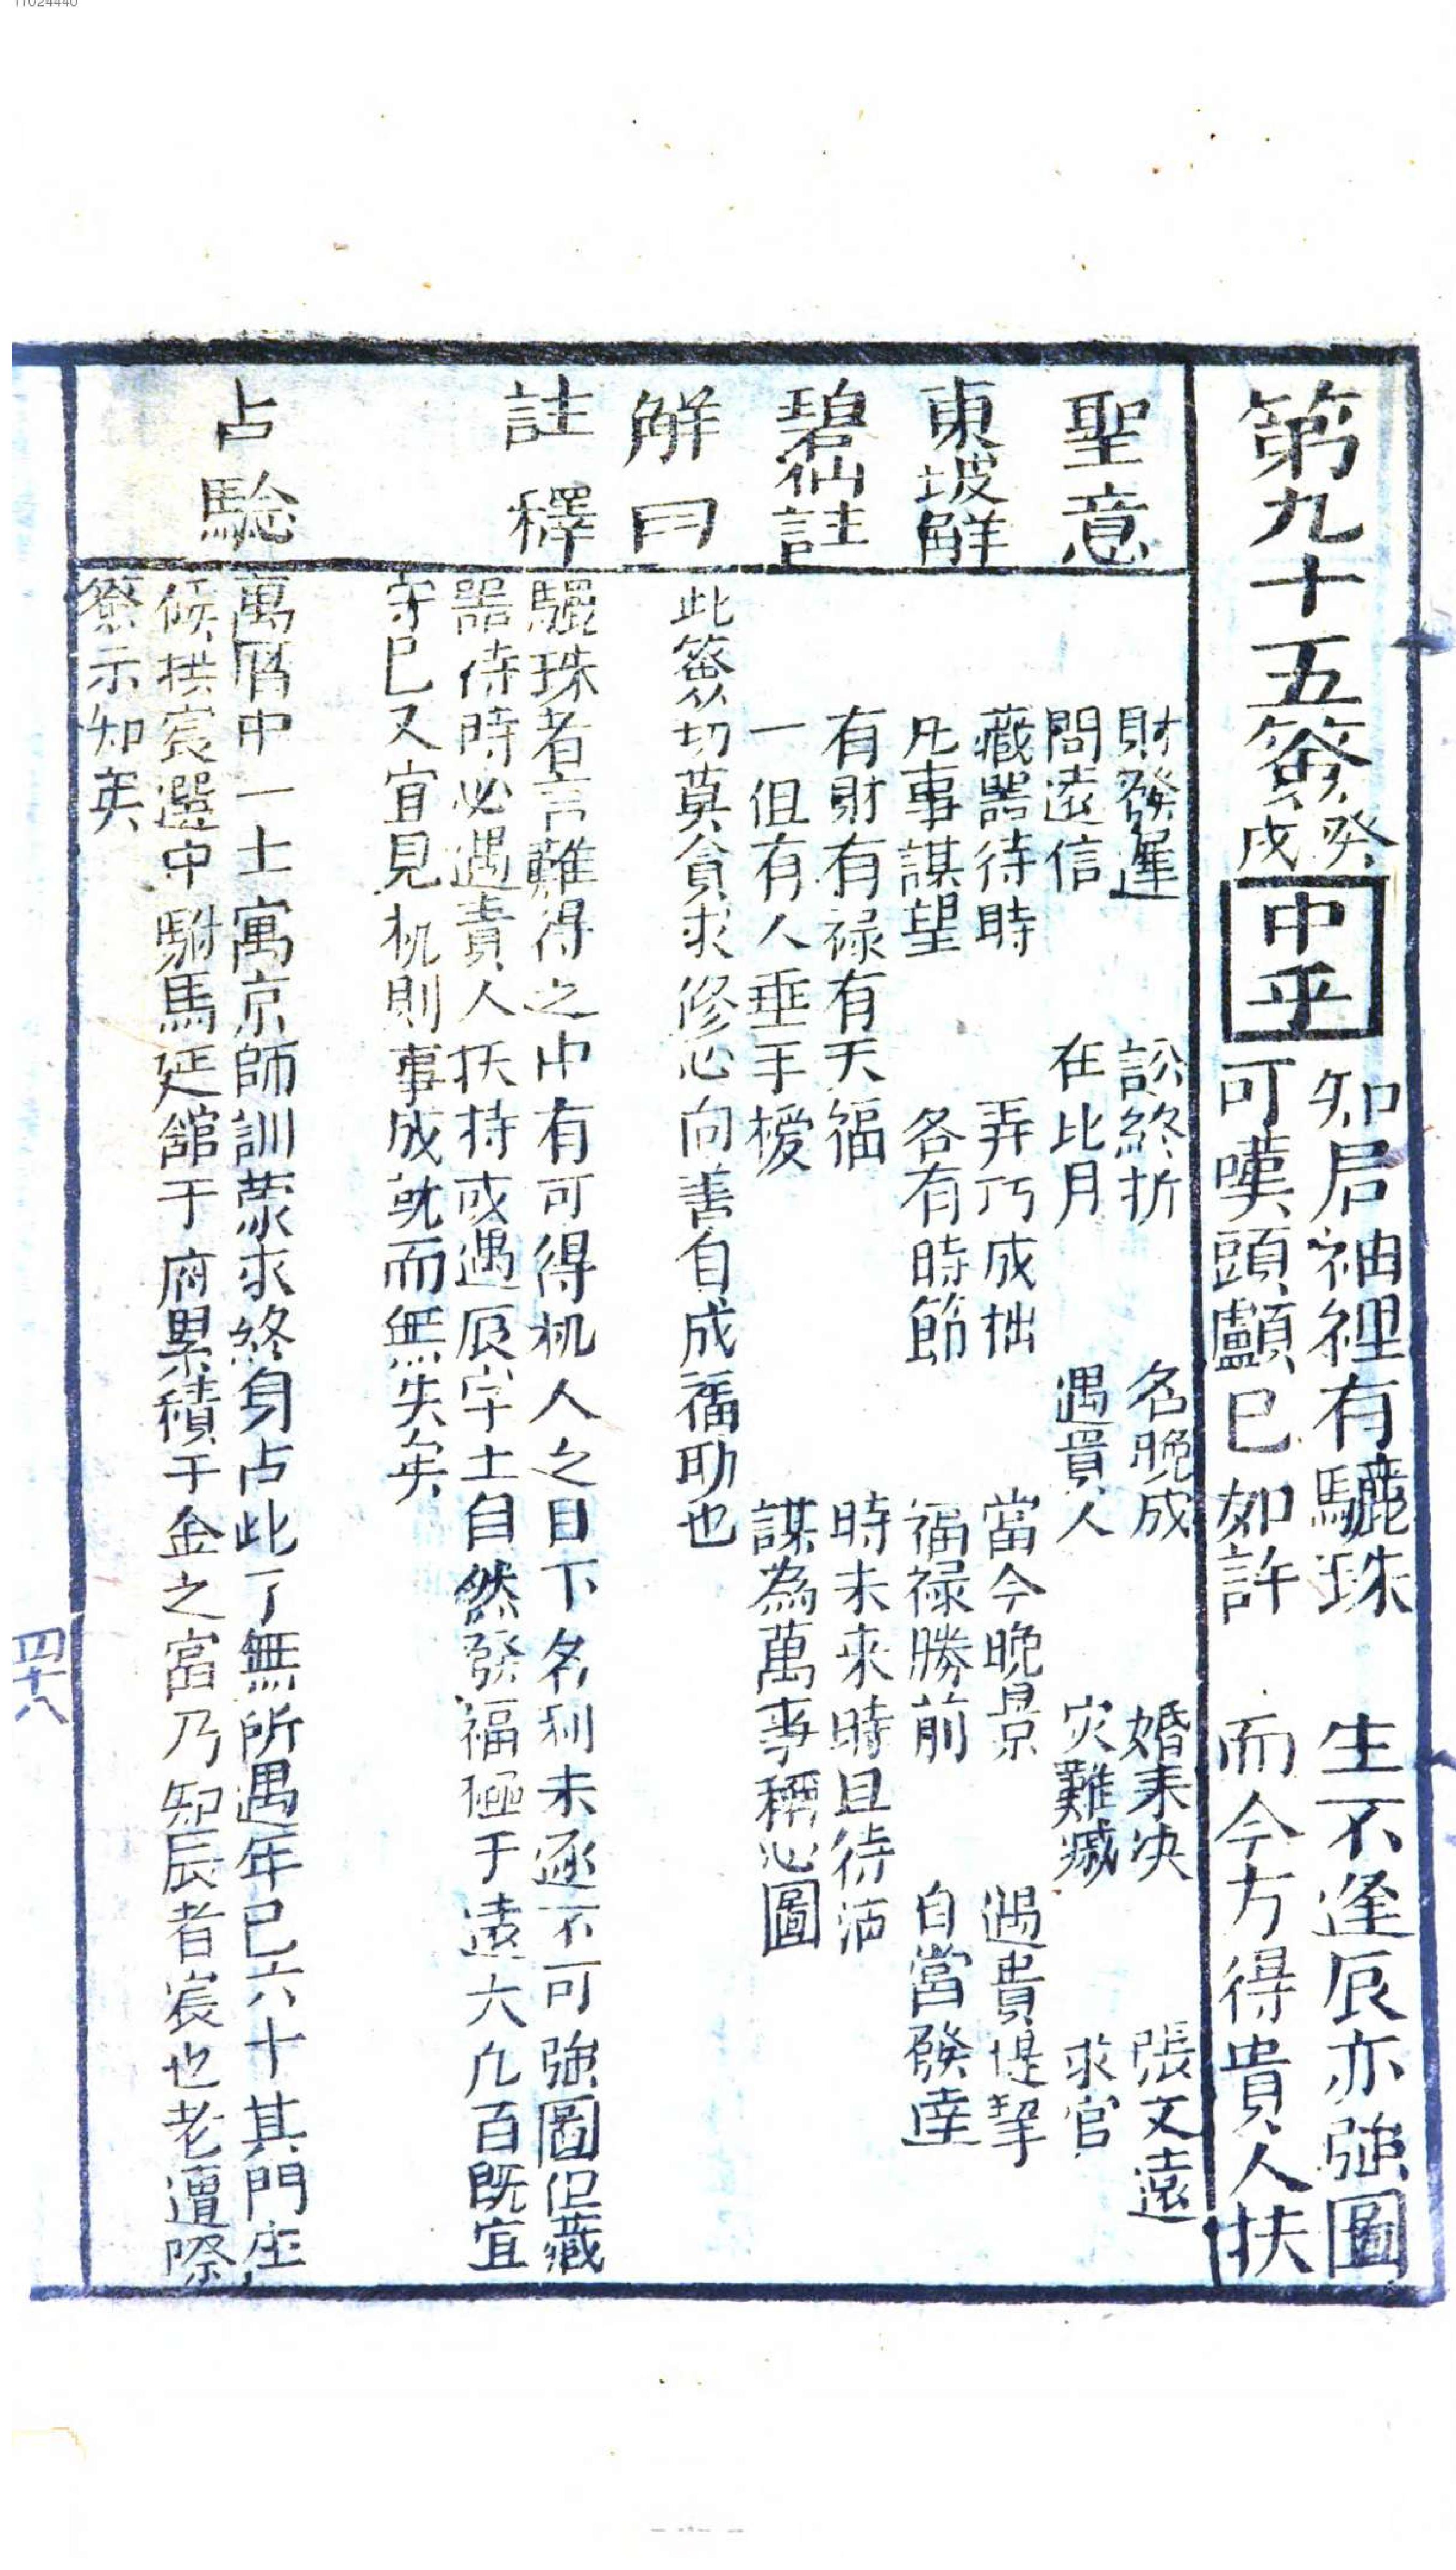 第九十五簽 癸戌 中平
知君袖裡有驪珠 生不逢辰亦強圖
可嘆頭顱已如許 而今方得貴人扶
聖意
財發遲 訟終折 名晚成 婚未决 張文遠
問遠信 在比月 遇貴人 灾難滅 求官
東坡解
藏器待時 弄巧成拙 當今晚景 遇貴提挈
凡事謀望 各有時節 福禄勝前 自當發達
碧仙註
有財有禄有天福 時未來時且待沽
一但有人垂手楥 謀為萬事稱心圖
解曰
此簽切莫貪求修心向善自成福助也
註釋
驪珠者言難得之中有可得机人之目下名利未逐不可強圖但藏
器待時必遇責人扶持或遇辰字土自然發福極于遠大凢百既宜
守已又宜見机則事成就而無失矣
占騐
萬曆中一士寓京師訓蒙求終身占此了無所遇年已六十其門生
候拱宸選中駙馬延舘于府累積千金之富乃知辰者宸也老遭際
簽示知矣
四十八